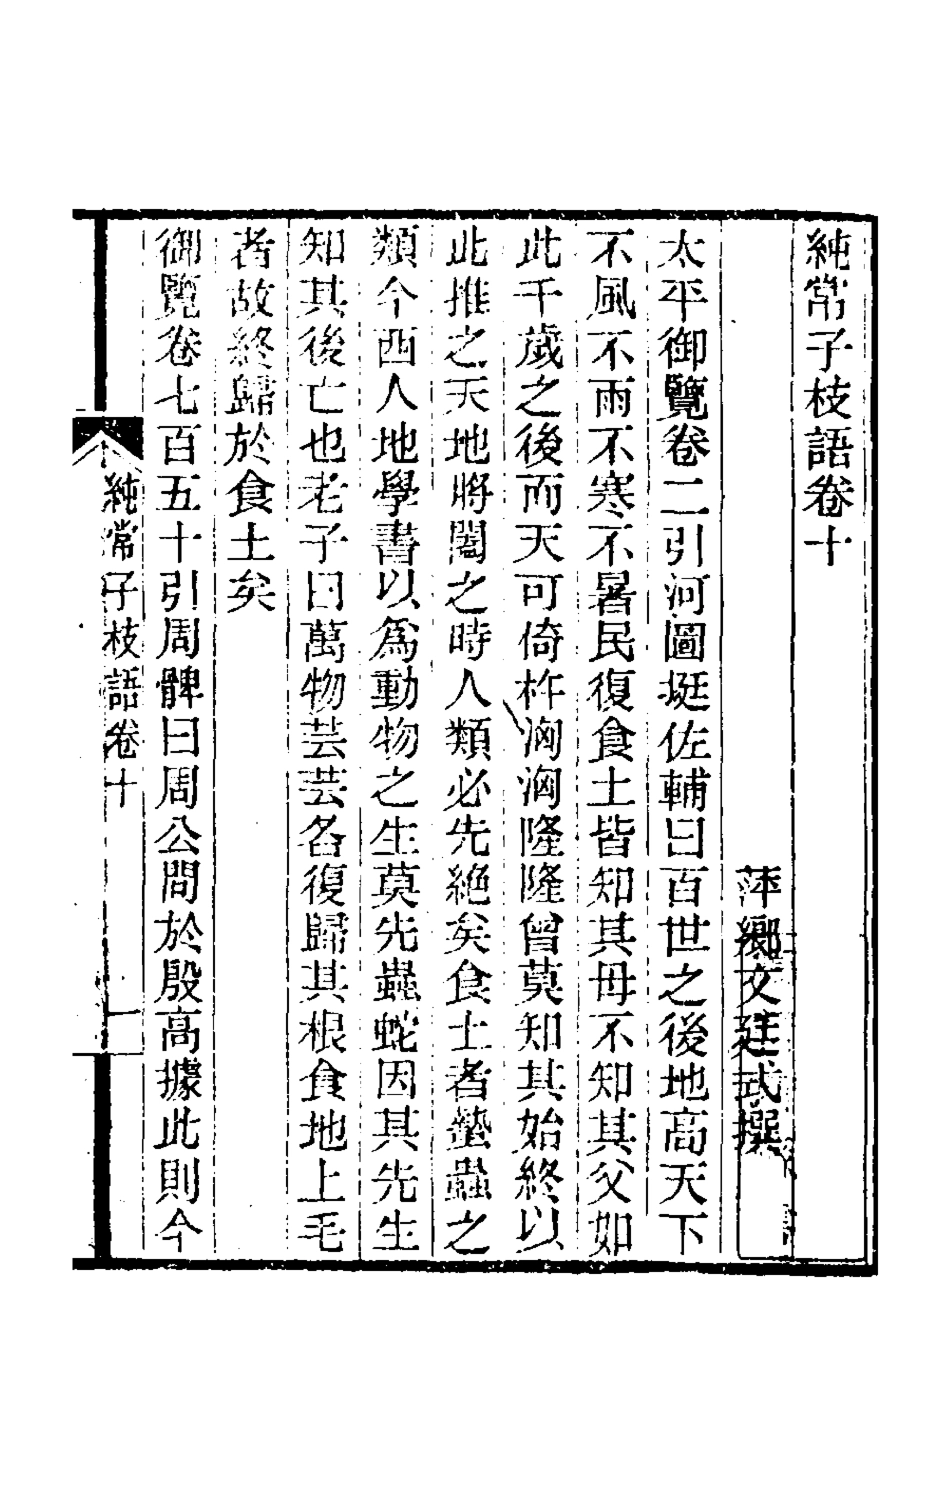 純常子枝語卷十
萍鄉文廷式撰
太平御覽卷二引河圖挻佐輔曰百世之後地高天下
不風不雨不寒不暑民復食土皆知其母不知其父如
此千歲之後而天可倚杵洶洶隆隆曾莫知其始終以
此推之天地將闔之時人類必先絶矣食土者蟄蟲之
類今西人地學書以爲動物之生莫先蟲蛇因其先生
知其後亡也老子曰萬物芸芸各復歸其根食地上毛
者故終歸於食土矣
御覽卷七百五十引周髀曰周公問於殷高據此則今
純常子枝語卷十
一